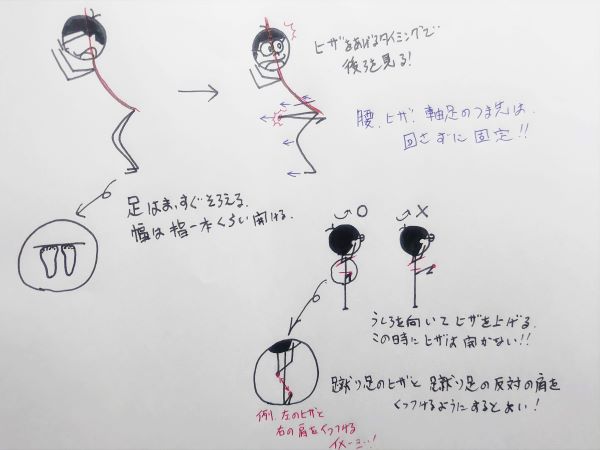 ヒザをあげるタイミングで
後ろを見る!
腰、ヒザ、軸足のつま先は、
回さずに固定!!
足はまっすぐそろえる。
幅は指一本くらい開ける。
○
×
うしろを向いてヒザを上げる。
この時にヒザは開かない!!
蹴り足のヒザと蹴り足の反対の肩を
くっつけるようにするとよい!
例、左のヒザと
右の肩をくっつける
イメージ!